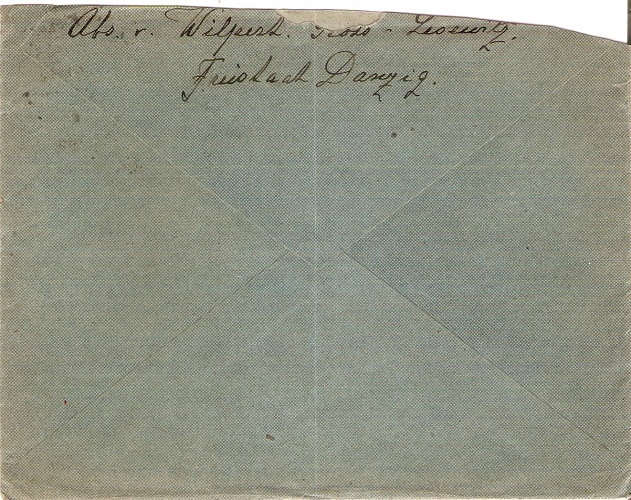 Abs. v. Wilpert. Gross - Leesewitz.
Freistaat Danzig.